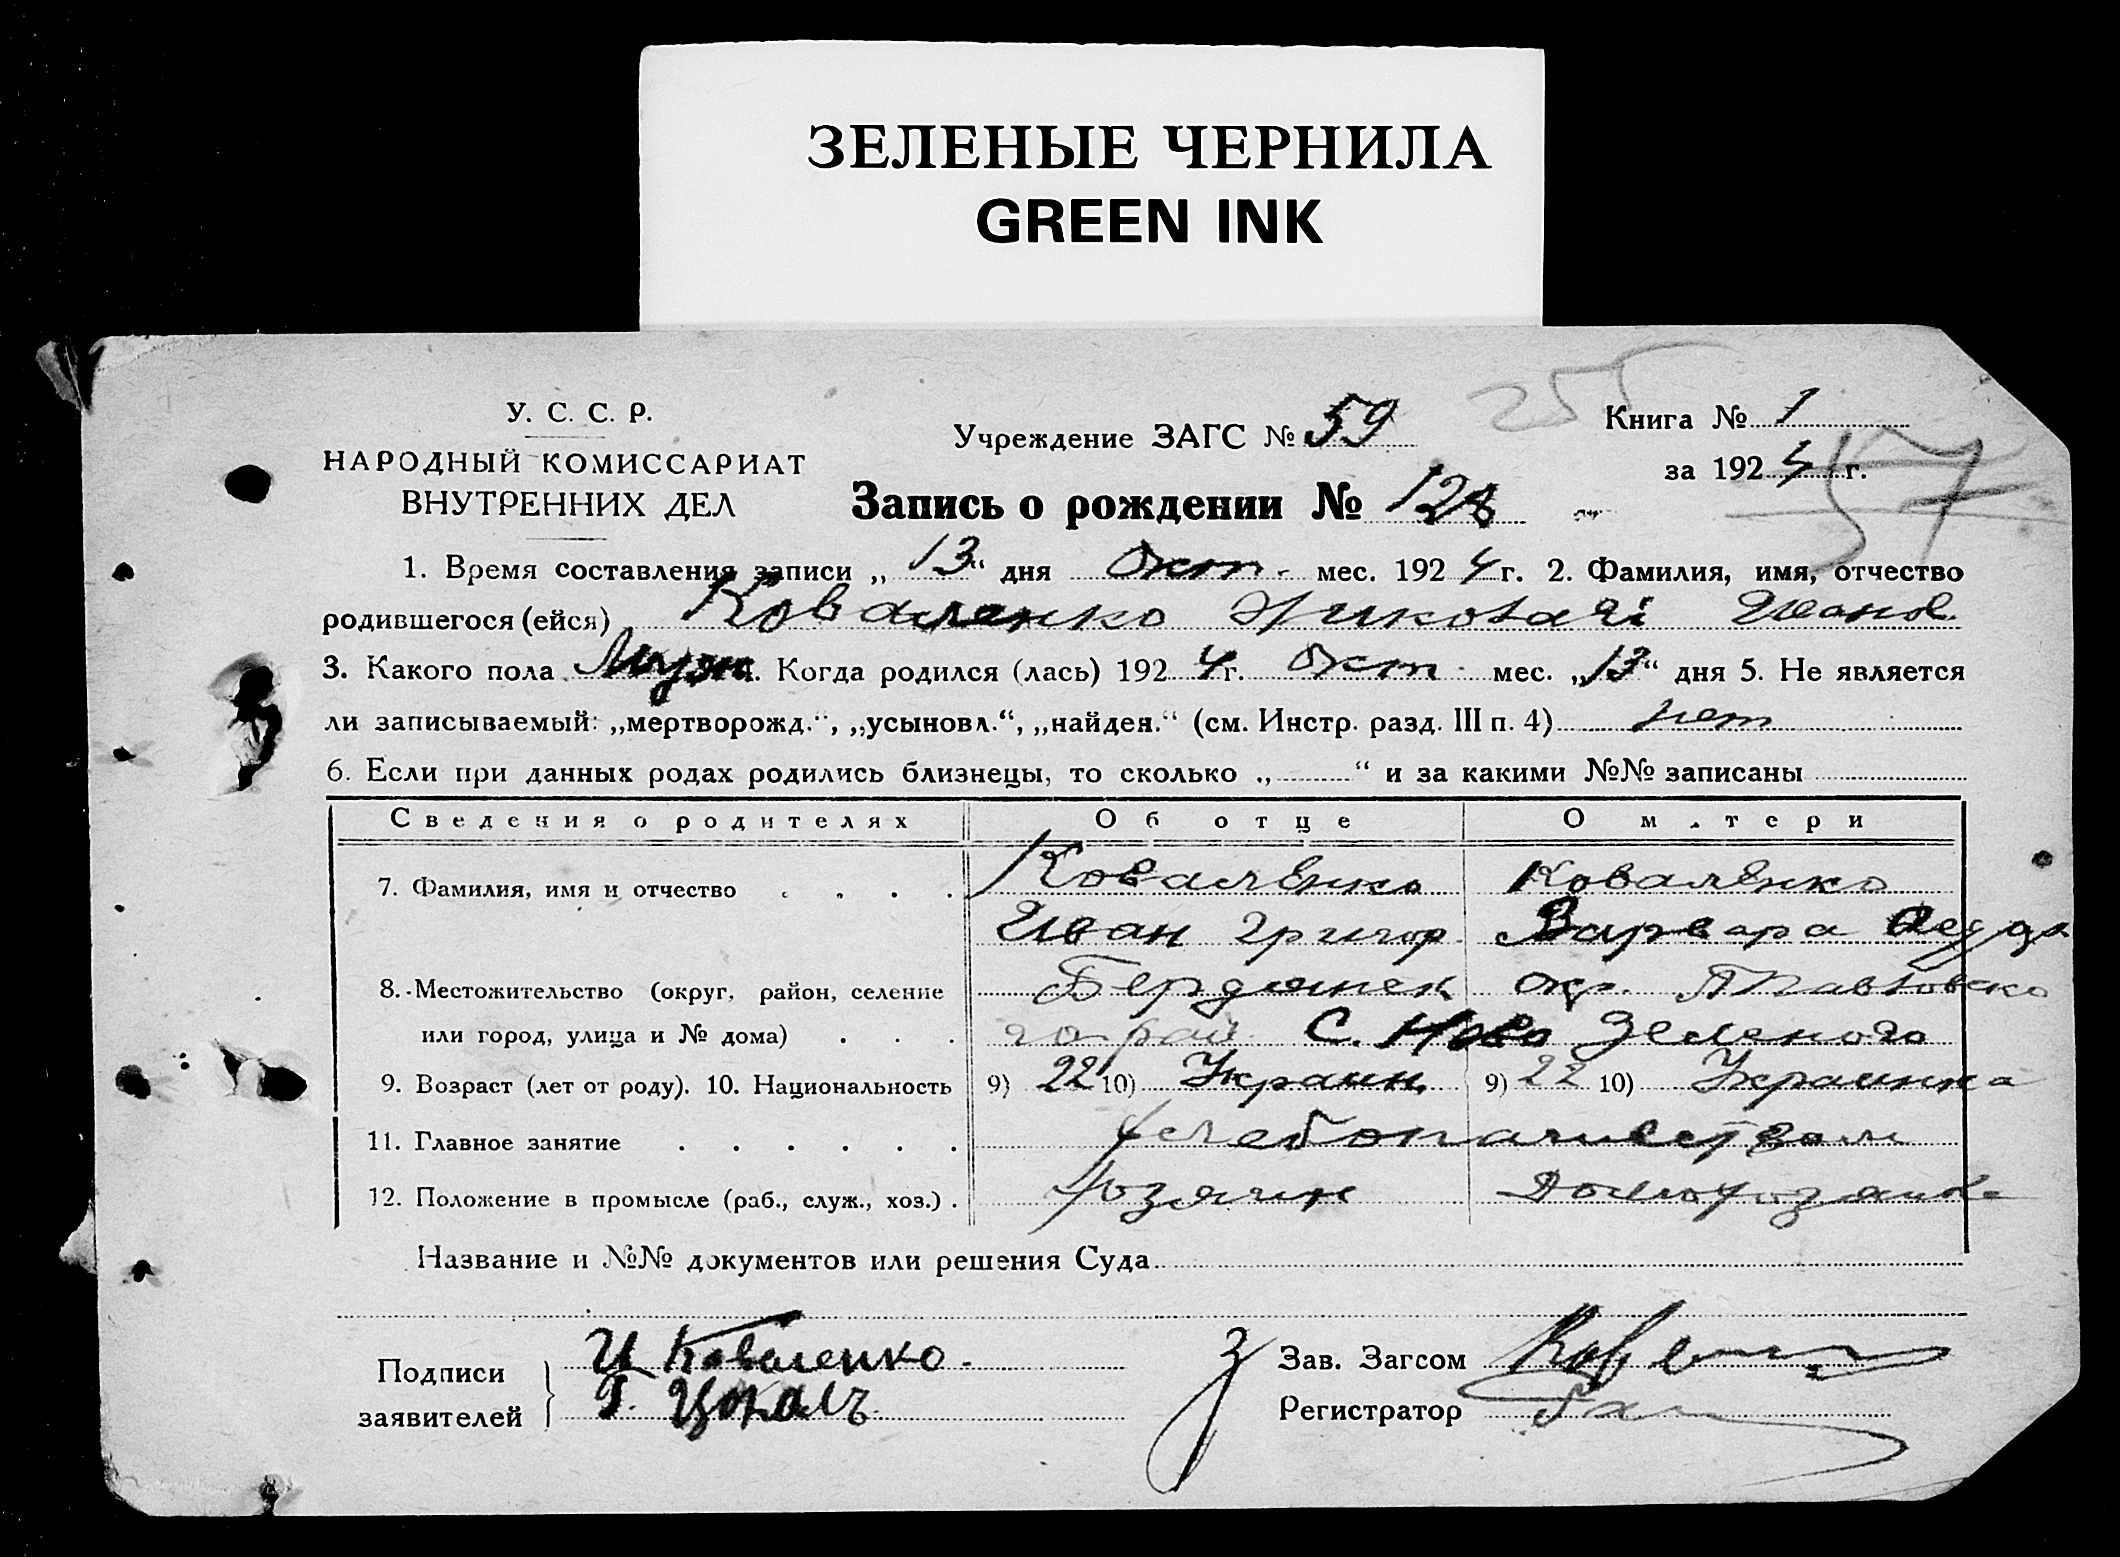 ЗЕЛЕНЫЕ ЧЕРНИЛА
GREEN INK
У. С. С. Р.
НАРОДНЫЙ КОМИССАРИАТ
ВНУТРЕННИХ ДЕЛ
Учреждение ЗАГС № 59
255
Книга № 1
за 1924 г.
57
Запись о рождении № 128
1. Время составления записи „13“ дня Окт. мес. 1924 г. 2. Фамилия, имя, отчество
родившегося (ейся) Коваленко Николай Иванов.
3. Какого пола Муж. 4. Когда родился (лась) 1924 г. Окт. мес. „13“ дня 5. Не является
ли записываемый: „мертворожд.“, „усыновл.“, „найден.“ (см. Инстр. разд. III п. 4) нет
6. Если при данных родах родились близнецы, то сколько „ “ и за какими №№ записаны
Сведения о родителях Об отце О матери
7. Фамилия, имя и отчество Коваленко Коваленко
Иван Григор. Варвара
8. Местожительство (округ, район, селение Бердянск окр. Павловско
или город, улица и № дома) го рай. С. Ново Зеленого
9. Возраст (лет от роду). 10. Национальность 9) 22 10) Украин. 9) 22 10) Украинка
11. Главное занятие Хлебопашеством
12. Положение в промысле (раб., служ., хоз.) Хозяин Домохозяйка
Название и №№ документов или решения Суда
Подписи заявителей И Коваленко.
Г. Цокаль
Зав. Загсом
Регистратор